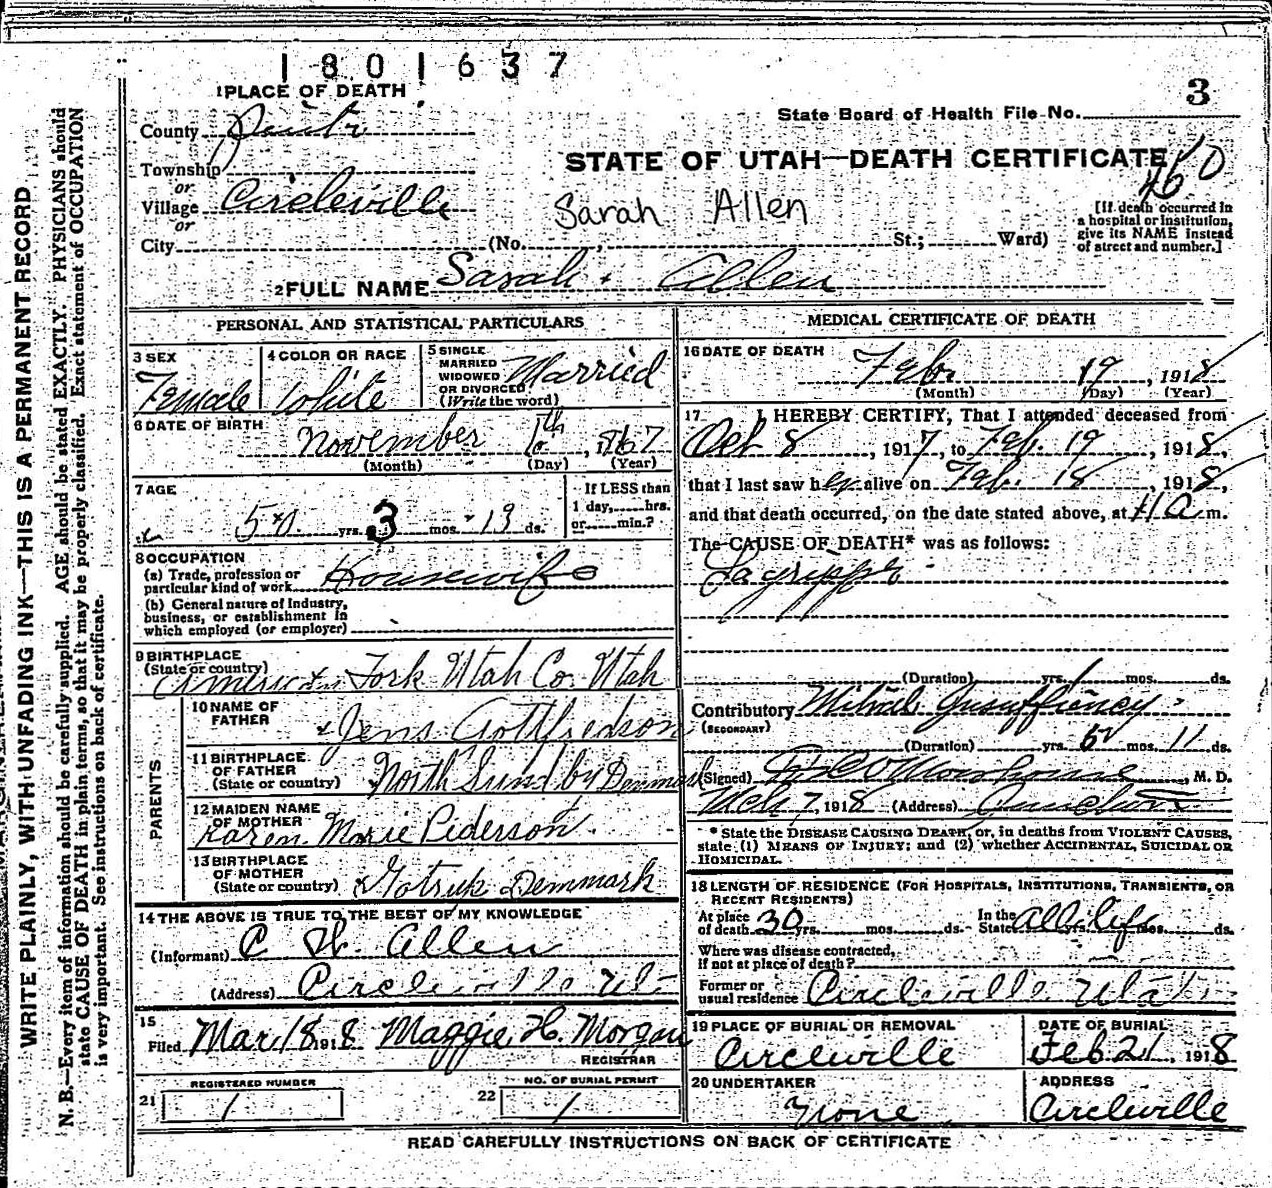 1801637
3
1 PLACE OF DEATH
State Board of Health File No.
County
STATE OF UTAH—DEATH CERTIFICATE
Township
or
Village Circleville
Sarah Allen
[If death occurred in
a hospital or institution,
give its NAME instead
of street and number.]
or
City (No. , St.; Ward)
2 FULL NAME Sarah Allen
PERSONAL AND STATISTICAL PARTICULARS
3 SEX
Female
4 COLOR OR RACE
White
5 SINGLE
MARRIED
WIDOWED
OR DIVORCED
(Write the word)
Married
6 DATE OF BIRTH
November 6th, 1867
(Month) (Day) (Year)
7 AGE
50 yrs. 3 mos. 13 ds.
If LESS than
1 day, hrs.
or min.?
8 OCCUPATION
(a) Trade, profession or
particular kind of work Housewife
(b) General nature of Industry,
business, or establishment in
which employed (or employer)
9 BIRTHPLACE
(State or country)
American Fork Utah Co. Utah
PARENTS
10 NAME OF
FATHER
Jens Gottfredson
11 BIRTHPLACE
OF FATHER
(State or country) North Sundby Denmark
12 MAIDEN NAME
OF MOTHER
Karen Marie Piderson
13 BIRTHPLACE
OF MOTHER
(State or country) Denmark
14 THE ABOVE IS TRUE TO THE BEST OF MY KNOWLEDGE
(Informant) C H Allen
(Address) Circleville Ut
15
Filed Mar 18 1918 Maggie H. Morgan
REGISTRAR
21 REGISTERED NUMBER
1
22 NO. OF BURIAL PERMIT
1
MEDICAL CERTIFICATE OF DEATH
16 DATE OF DEATH
Feb. 19, 1918
(Month) (Day) (Year)
17 I HEREBY CERTIFY, That I attended deceased from
Oct 8, 1917, to Feb. 19, 1918,
that I last saw her alive on Feb. 18, 1918,
and that death occurred, on the date stated above, at m.
The CAUSE OF DEATH* was as follows:
Lagrippe
(Duration) yrs. 1 mos. ds.
Contributory Mitral Insufficiency
(SECONDARY)
(Duration) yrs. mos. 11 ds.
(Signed) , M. D.
Mch 7, 1918 (Address)
* State the DISEASE CAUSING DEATH, or, in deaths from VIOLENT CAUSES,
state (1) MEANS OF INJURY; and (2) whether ACCIDENTAL, SUICIDAL OR
HOMICIDAL.
18 LENGTH OF RESIDENCE (FOR HOSPITALS, INSTITUTIONS, TRANSIENTS, OR
RECENT RESIDENTS)
At place
of death 30 yrs. mos. ds.
In the
State all life yrs. mos. ds.
Where was disease contracted,
if not at place of death?
Former or
usual residence Circleville Utah
19 PLACE OF BURIAL OR REMOVAL
Circleville
DATE OF BURIAL
Feb 21 1918
20 UNDERTAKER
None
ADDRESS
Circleville
READ CAREFULLY INSTRUCTIONS ON BACK OF CERTIFICATE
WRITE PLAINLY, WITH UNFADING INK—THIS IS A PERMANENT RECORD
N. B.—Every item of information should be carefully supplied. AGE should be stated EXACTLY. PHYSICIANS should
state CAUSE OF DEATH in plain terms, so that it may be properly classified. Exact statement of OCCUPATION
is very important. See instructions on back of certificate.